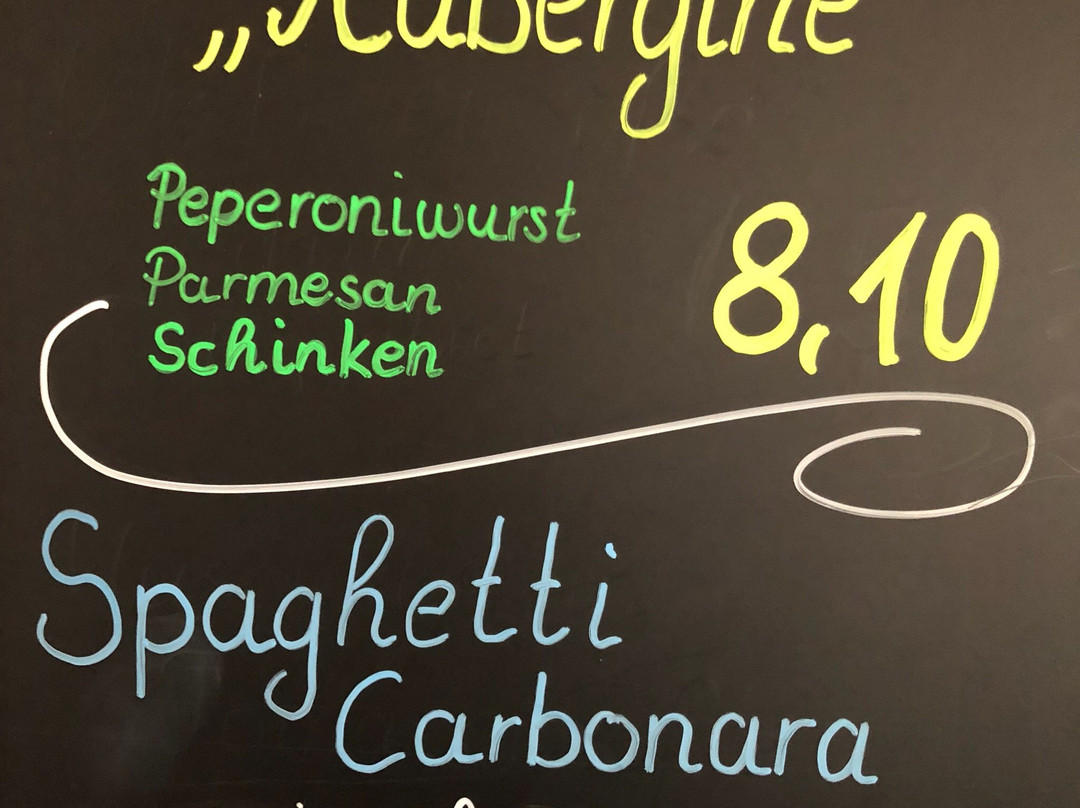 „Aubergine
Peperoniwurst
Parmesan
Schinken
8,10
Spaghetti
Carbonara